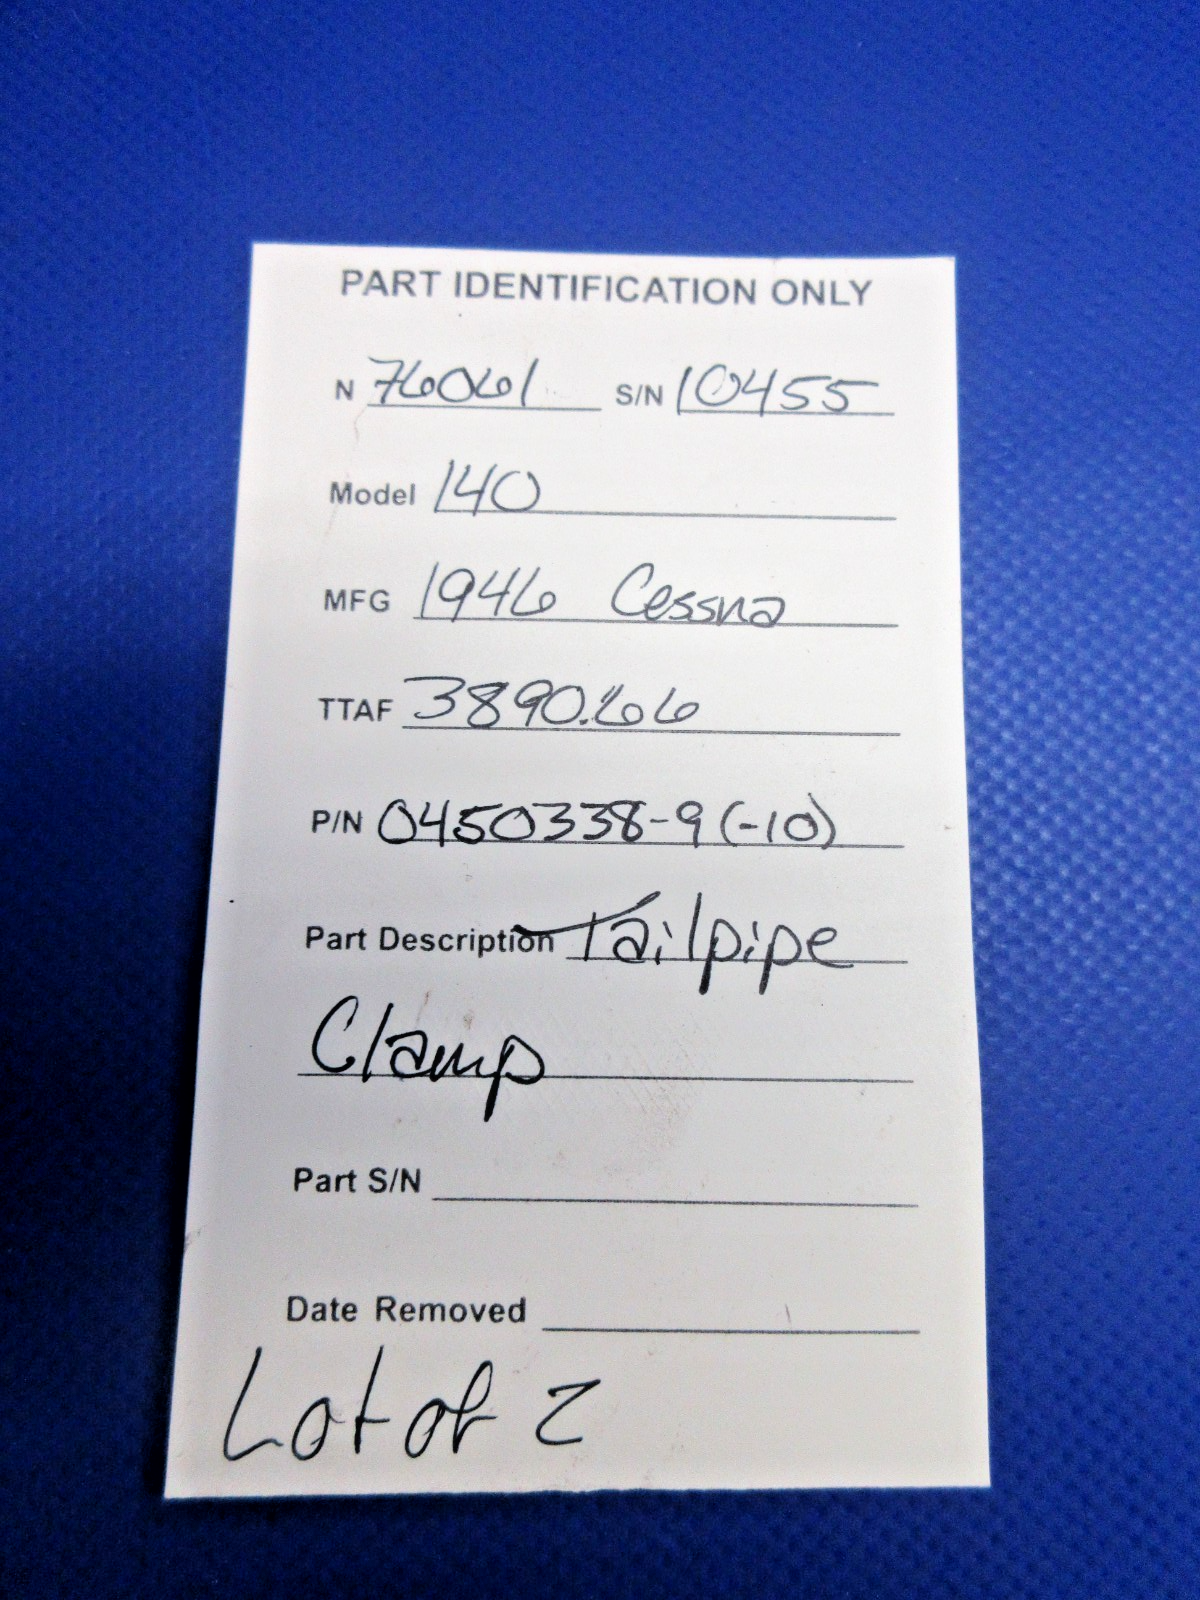 PART IDENTIFICATION ONLY
N 76061 S/N 10455
Model 140
MFG 1946 Cessna
TTAF 3890.66
P/N 0450338-9 (-10)
Part Description Tailpipe
Clamp
Part S/N
Date Removed
Lot of 2